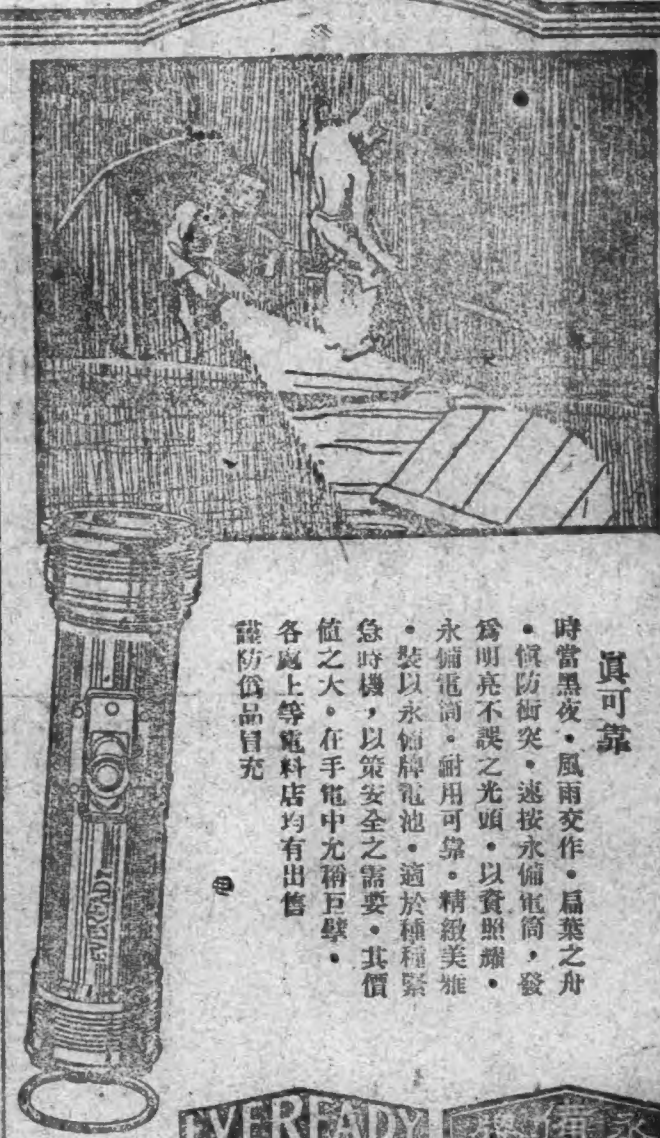 眞可靠
時當黑夜。風雨交作。扁葉之舟
。愼防衝突。速按永備電筒，發
爲明亮不誤之光頭。以資照耀。
永備電筒。耐用可靠。精緻美雅
。裝以永備牌電池。適於種種緊
急時機，以策安全之需要。其價
値之大。在手電中尤稱巨擘。
各處上等電料店均有出售
謹防僞品冒充
EVEREADY
EVEREADY
牌備永